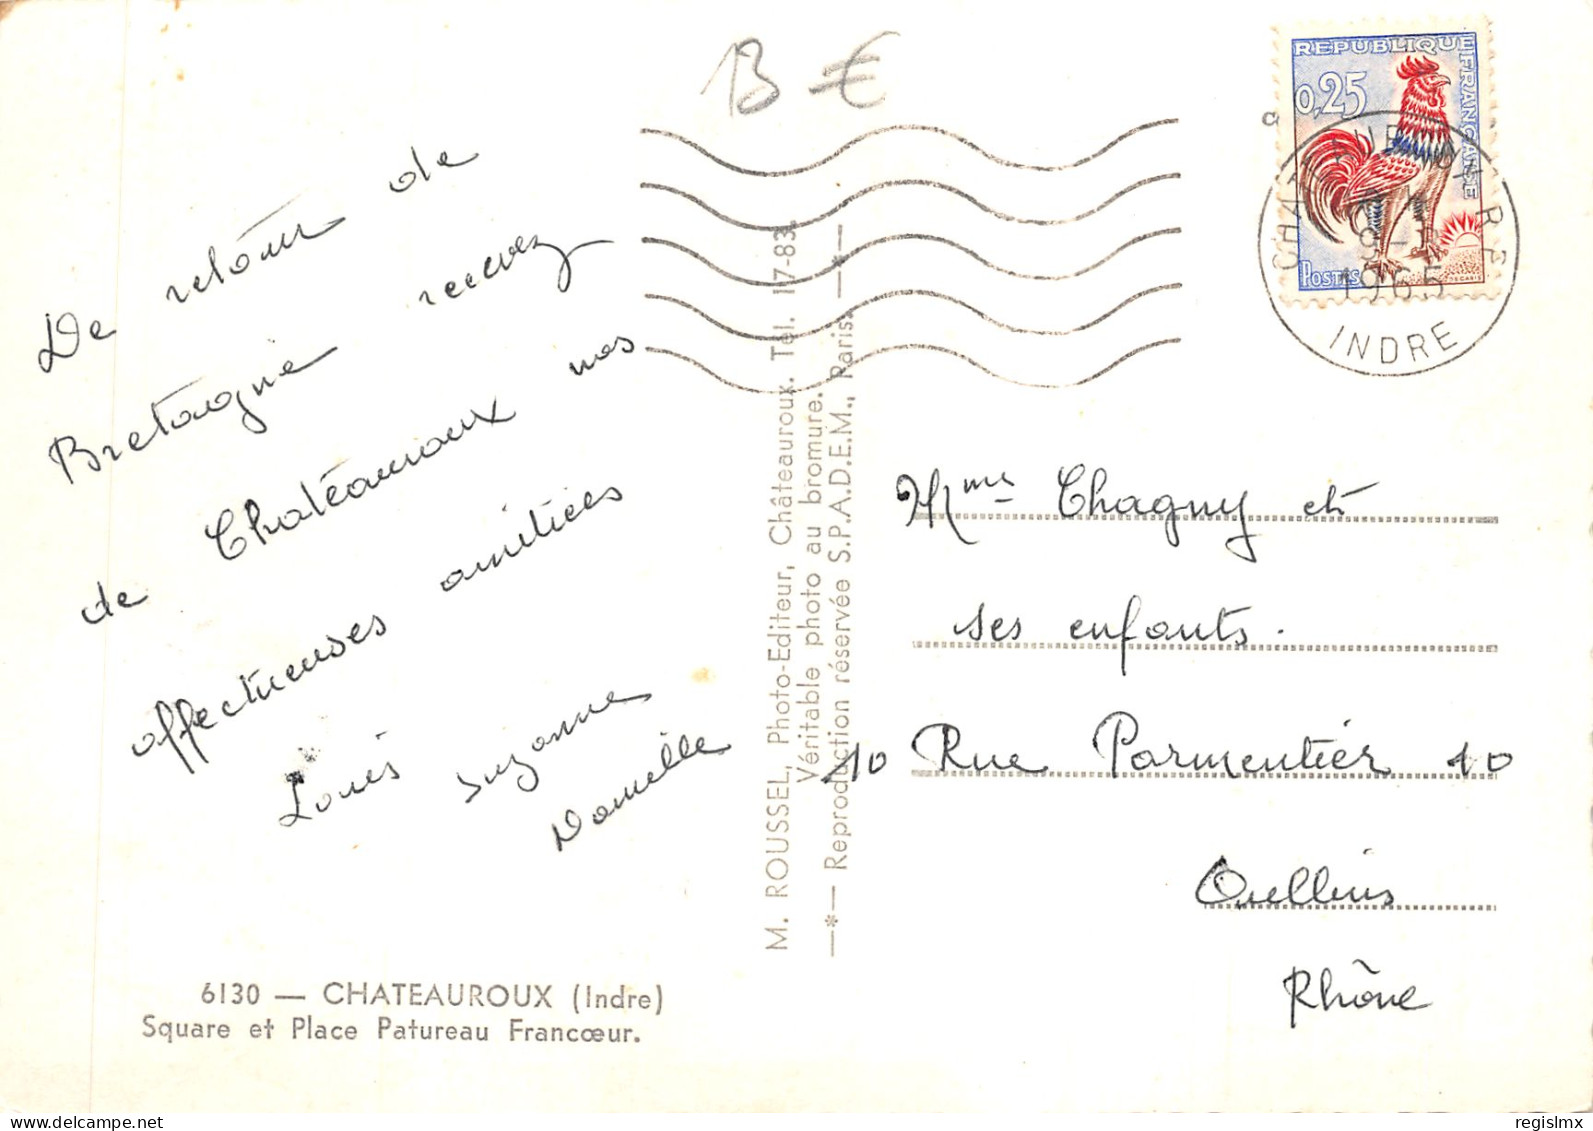 B €
REPUBLIQUE FRANÇAISE
0,25
POSTES
DECARIS
1965
INDRE
De retour de
Bretagne recevez
de Chateauroux nos
affectueuses amitiées
Louis Suzanne
Danielle
M. ROUSSEL, Photo-Editeur, Châteauroux. Tél. 17-83.
Véritable photo au bromure.
—*— Reproduction réservée S.P.A.D.E.M., Paris. —*—
Mme Chagny et
ses enfants.
10 Rue Parmentier 10
Oullins
Rhône
6130 — CHATEAUROUX (Indre)
Square et Place Patureau Francœur.
regislmx